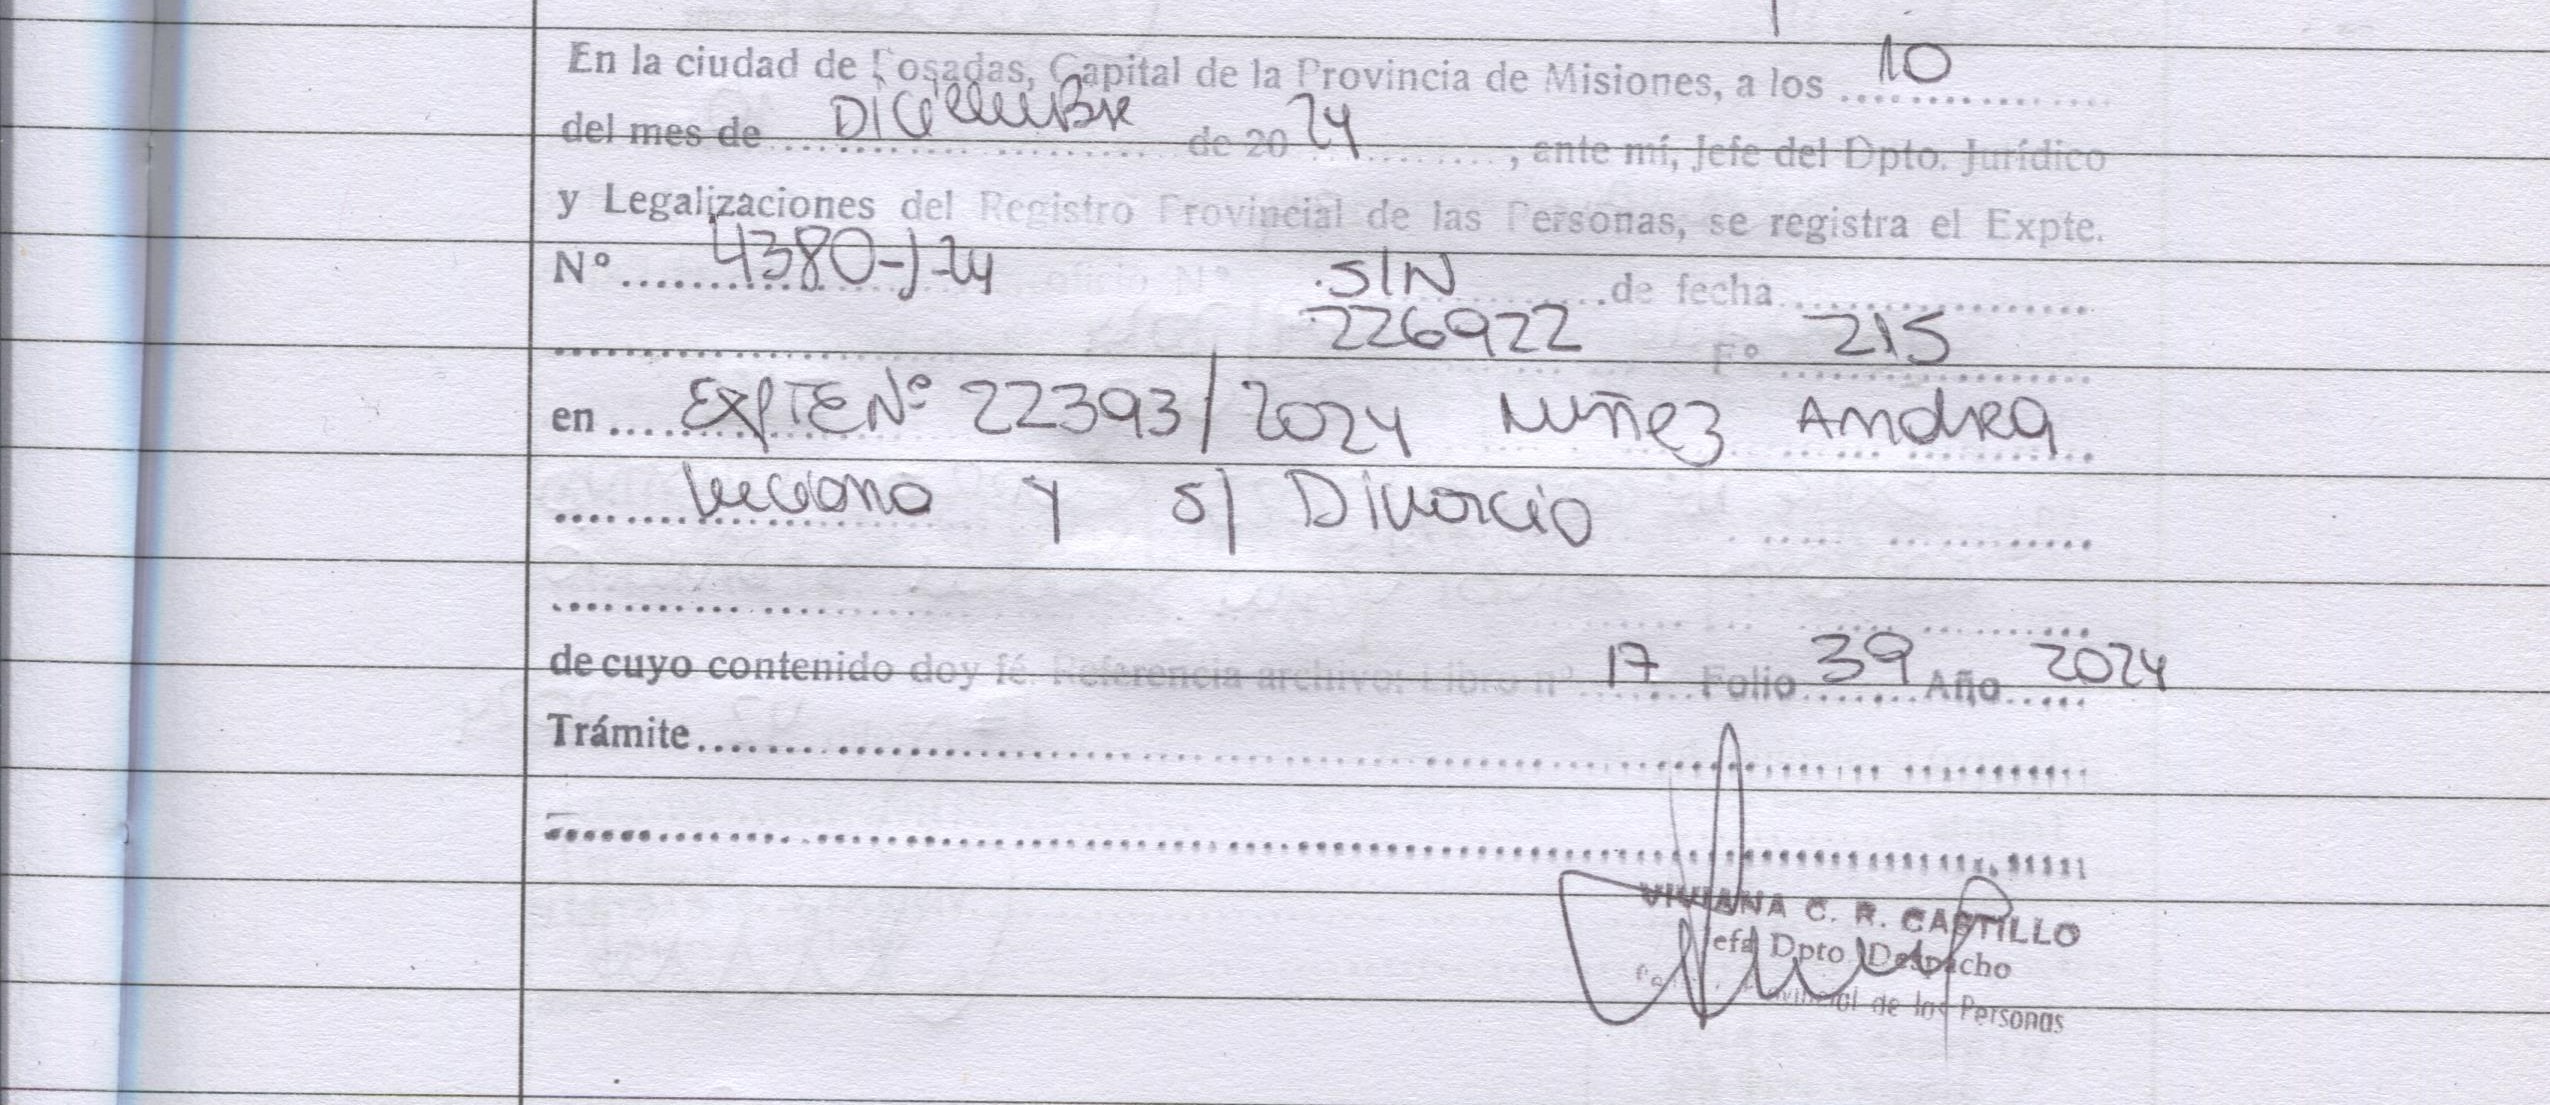 En la ciudad de Posadas, Capital de la Provincia de Misiones, a los 10
del mes de Diciembre de 2024, ante mí, Jefe del Dpto. Jurídico
y Legalizaciones del Registro Provincial de las Personas, se registra el Expte.
Nº 4380-J-24 oficio Nº S/N de fecha
226922 Fº 215
en EXPTE Nº 22393/2024 Nuñez Andrea
Luciana y s/ Divorcio
de cuyo contenido doy fé. Referencia archivo: Libro nº 17 Folio 39 Año 2024
Trámite
VIVIANA C. R. CASTILLO
Jefa Dpto Despacho
Provincial de las Personas